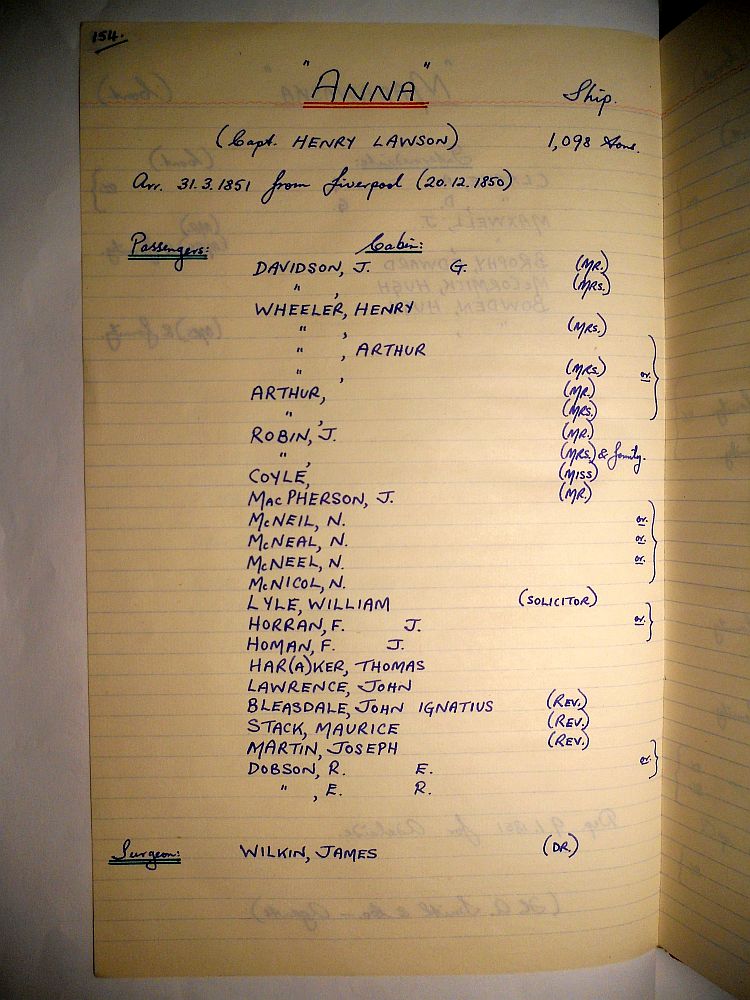 154.
"ANNA" Ship.
(Capt. HENRY LAWSON) 1,098 tons.
Arr. 31.3.1851 from Liverpool (20.12.1850)
Passengers: Cabin:
DAVIDSON, J. G. (MR.)
" , (MRS.)
WHEELER, HENRY
" , (MRS.)
" , ARTHUR
" , (MRS.) or.
ARTHUR, (MR.)
" , (MRS.)
ROBIN, J. (MR.)
" , (MRS.) & family.
COYLE, (MISS)
MACPHERSON, J. (MR.)
McNEIL, N. or.
McNEAL, N. or.
McNEEL, N. or.
McNICOL, N.
LYLE, WILLIAM (SOLICITOR)
HORRAN, F. J. or.
HOMAN, F. J.
HAR(A)KER, THOMAS
LAWRENCE, JOHN
BLEASDALE, JOHN IGNATIUS (REV.)
STACK, MAURICE (REV.)
MARTIN, JOSEPH (REV.)
DOBSON, R. E. or.
" , E. R.
Surgeon: WILKIN, JAMES (DR.)